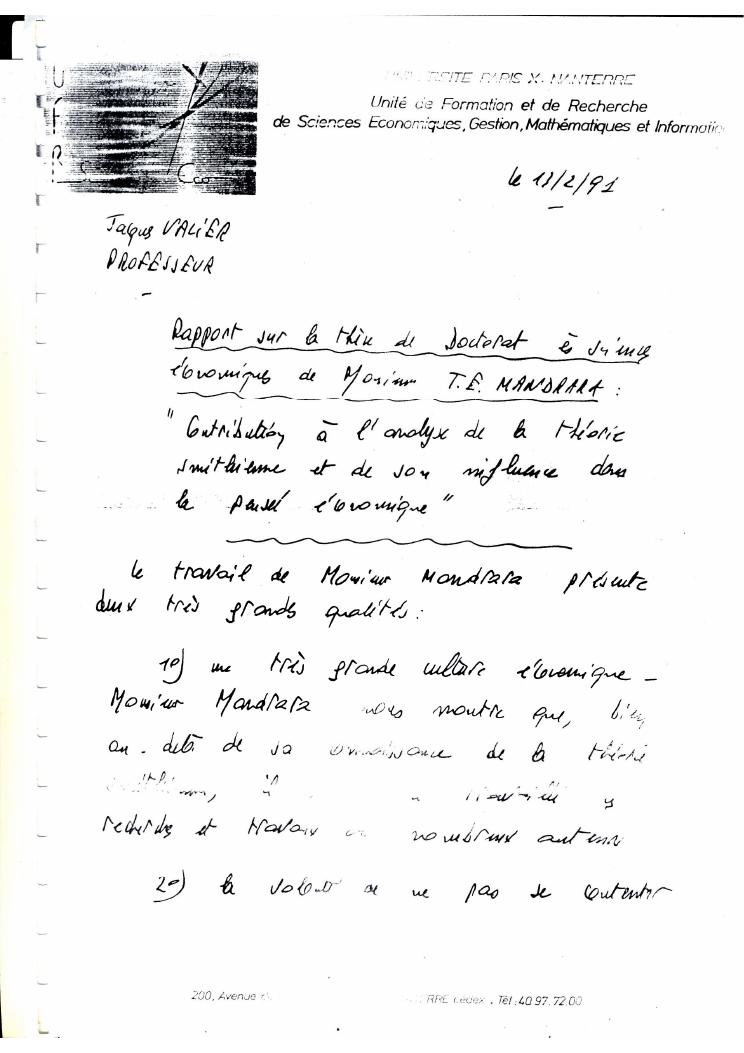 UFR
S. Eco
UNIVERSITE PARIS X. NANTERRE
Unité de Formation et de Recherche
de Sciences Economiques, Gestion, Mathématiques et Informatiq
le 13/2/91
Jacques VALIER
PROFESSEUR
Rapport sur la thèse de Doctorat ès sciences
économiques de Monsieur T.E. MANDRARA :
"Contribution à l'analyse de la théorie
smithienne et de son influence dans
la pensée économique"
Le travail de Monsieur Mandrara présente
deux très grandes qualités :
1º) une très grande culture économique -
Monsieur Mandrara nous montre que, bien
au-delà de sa connaissance de la théorie
smithienne, il
recherches et travaux de nombreux auteurs
2º) la volonté de ne pas se contenter
200, Avenue RRE cedex . Tél : 40.97.72.00